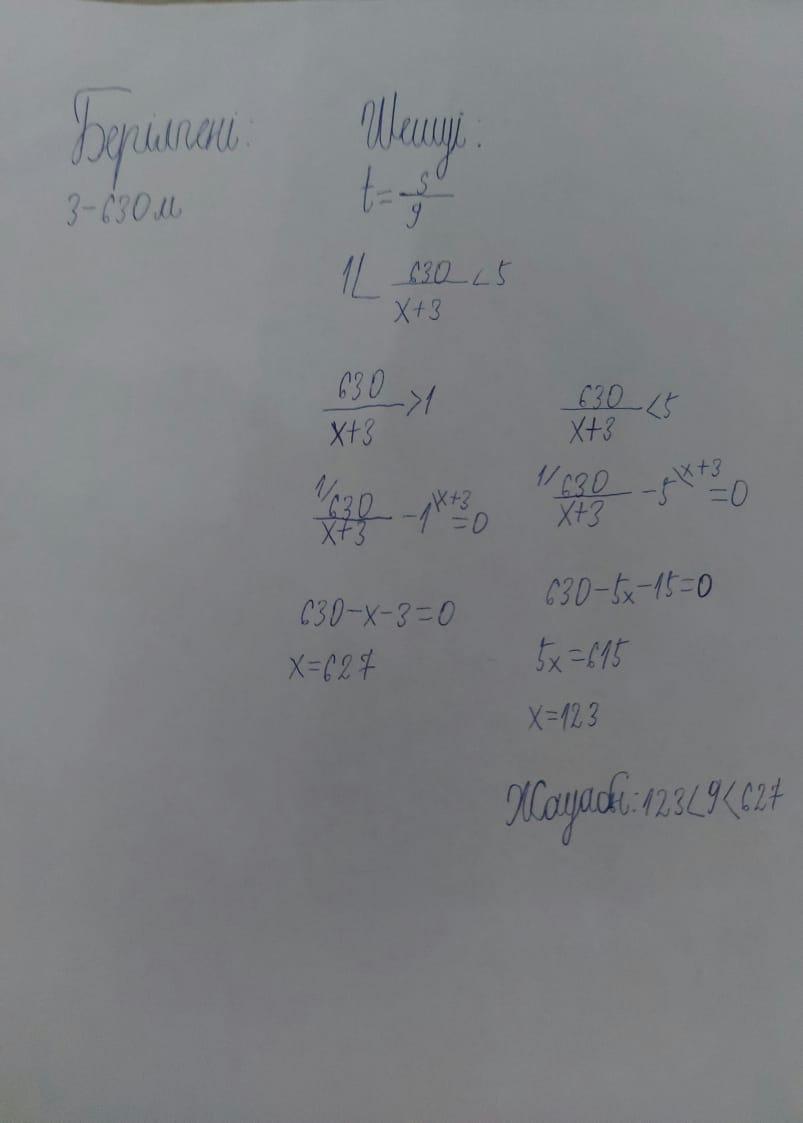 Берілгені: Шешуі:
3-630м t=s/9
1< 630/x+3 <5
630/x+3 >1 630/x+3 <5
1/ 630/x+3 -1\x+3 =0 1/ 630/x+3 -5\x+3 =0
630-x-3=0 630-5x-15=0
x=627 5x=615
x=123
Жауабі: 123<9<627